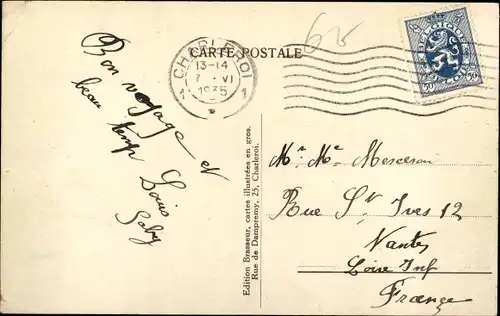 CARTE POSTALE
65
CHARLEROI
13-14
7 VI
1935
1 1
BELGIQUE
BELGIË
50 50
Bon voyage et
beau temp Louis
Gaby
Edition Brasseur, cartes illustrées en gros.
Rue de Dampremy, 25, Charleroi.
Mr Me Merceron
Rue St Ives 12
Nantes
Loire Inf
France